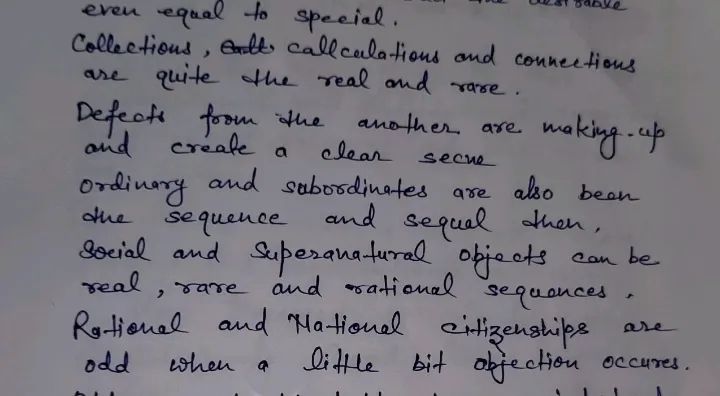 desirable
even equal to special.
Collections, callculations and connections
are quite the real and rare.
Defects from the another are making-up
and create a clear secne
ordinary and subordinates are also been
the sequence and sequal then.
Social and Superanatural objects can be
real, rare and rational sequances.
Rational and National citizenships are
odd when a little bit objection occures.